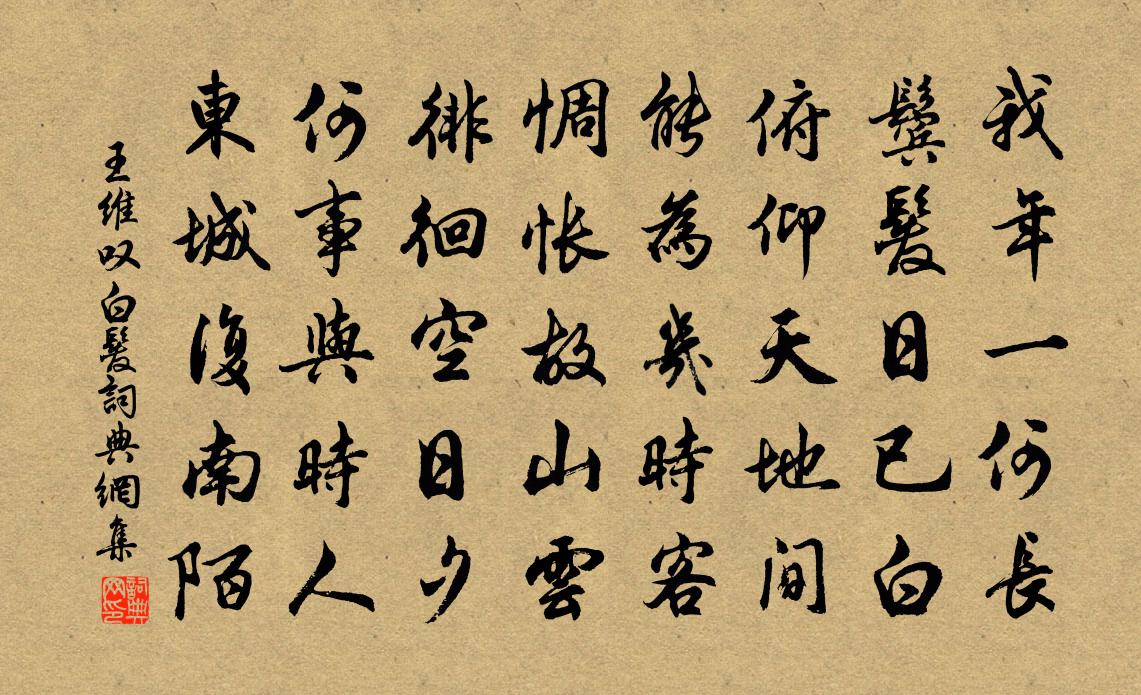 我年一何長
鬢髮日已白
俯仰天地間
能為幾時客
惆悵故山雲
徘徊空日夕
何事與時人
東城復南陌
王維叹白髮詞典網集
詞典網印